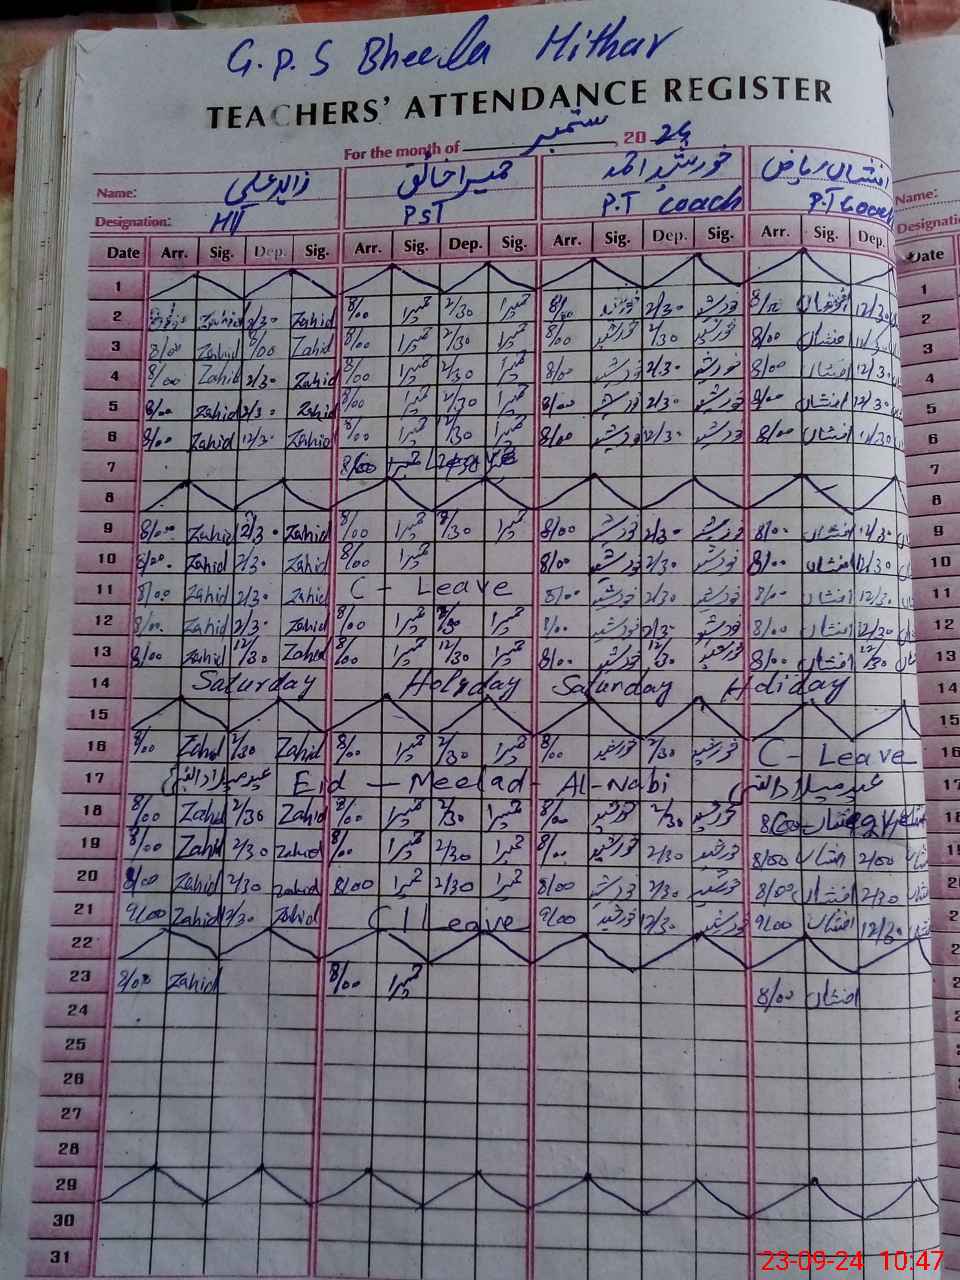 G.P.S Bheela Hithar
TEACHERS' ATTENDANCE REGISTER
For the month of ستمبر, 2024
Name: زاہد علی حمیرا خالق خورشید احمد افشاں ریاض Name:
Designation: HT PST P.T Coach P.T Coach Designation
Date Arr. Sig. Dep. Sig. Arr. Sig. Dep. Sig. Arr. Sig. Dep. Sig. Arr. Sig. Dep. Date
1 1
2 Zahid 2/30 Zahid 8/00 حمیرا 2/30 حمیرا 8/00 خورشید 2/30 خورشید افشاں 12/30 2
3 8/00 Zahid 8/00 Zahid 8/00 حمیرا 2/30 حمیرا 8/00 خورشید 2/30 خورشید 8/00 افشاں 3
4 8/00 Zahid 2/30 Zahid 8/00 حمیرا 2/30 حمیرا 8/00 خورشید 2/30 خورشید 8/00 افشاں 12/30 4
5 8/00 Zahid 2/30 Zahid 8/00 حمیرا 2/30 حمیرا 8/00 خورشید 2/30 خورشید 8/00 افشاں 12/30 5
6 8/00 Zahid 12/30 Zahid 8/00 حمیرا 12/30 حمیرا 8/00 خورشید 12/30 خورشید 8/00 افشاں 12/30 6
7 8/00 حمیرا 7
8 8
9 8/00 Zahid 2/30 Zahid 8/00 حمیرا 8/30 حمیرا 8/00 خورشید 2/30 خورشید 8/00 افشاں 12/30 9
10 8/00 Zahid 2/30 Zahid 8/00 حمیرا 8/00 خورشید 2/30 خورشید 8/00 افشاں 12/30 10
11 8/00 Zahid 2/30 Zahid C - Leave 8/00 خورشید 2/30 خورشید 8/00 افشاں 12/30 11
12 8/00 Zahid 2/30 Zahid 8/00 حمیرا حمیرا 8/00 خورشید 2/30 خورشید 8/00 افشاں 12/30 12
13 8/00 Zahid 12/30 Zahid 8/00 حمیرا 12/30 حمیرا 8/00 خورشید 12/30 خورشید 8/00 افشاں 12/30 13
14 Saturday Holyday Saturday Holiday 14
15 15
16 8/00 Zahid 2/30 Zahid 8/00 حمیرا 2/30 حمیرا 8/00 خورشید 2/30 خورشید C - Leave 16
17 عید میلادالنبی Eid - Meelad - Al-Nabi عید میلادالنبی 17
18 8/00 Zahid 2/30 Zahid 8/00 حمیرا 2/30 حمیرا 8/00 خورشید 2/30 خورشید 8/00 افشاں 18
19 8/00 Zahid 2/30 Zahid 8/00 حمیرا 2/30 حمیرا 8/00 خورشید 2/30 خورشید 8/00 افشاں 2/00 19
20 8/00 Zahid 2/30 Zahid 8/00 حمیرا 2/30 حمیرا 8/00 خورشید 2/30 خورشید 8/00 افشاں 2/30 20
21 9/00 Zahid 12/30 Zahid C Leave 9/00 خورشید 12/30 خورشید 9/00 افشاں 12/30 21
22
23 8/00 Zahid 8/00 حمیرا 8/00 افشاں
24
25
26
27
28
29
30
31
23-09-24 10:47